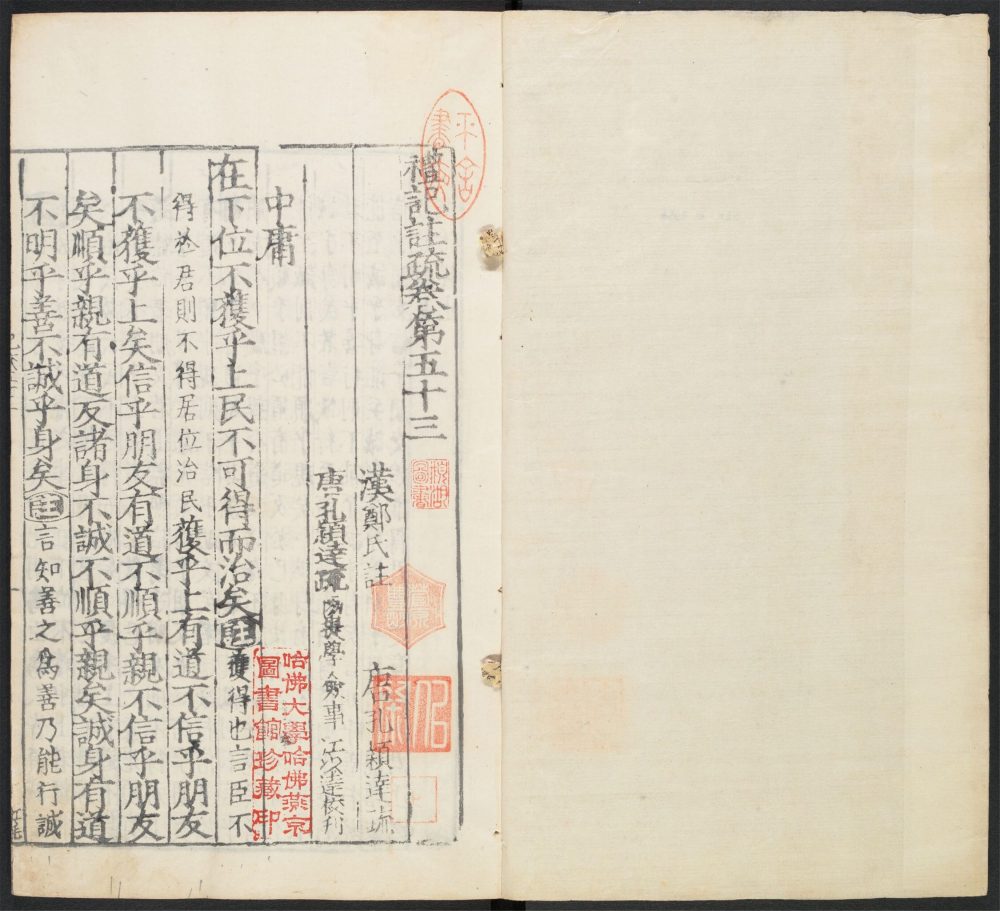 禮記註疏卷第五十三
漢鄭氏註 唐孔穎達疏
唐孔穎達疏 僉事江以達校刊
中庸
在下位不獲乎上民不可得而治矣註獲得也言臣不
得於君則不得居位治民獲乎上有道不信乎朋友
不獲乎上矣信乎朋友有道不順乎親不信乎朋友
矣順乎親有道反諸身不誠不順乎親矣誠身有道
不明乎善不誠乎身矣註言知善之爲善乃能行誠
哈佛大學哈佛燕京
圖書館珍藏印